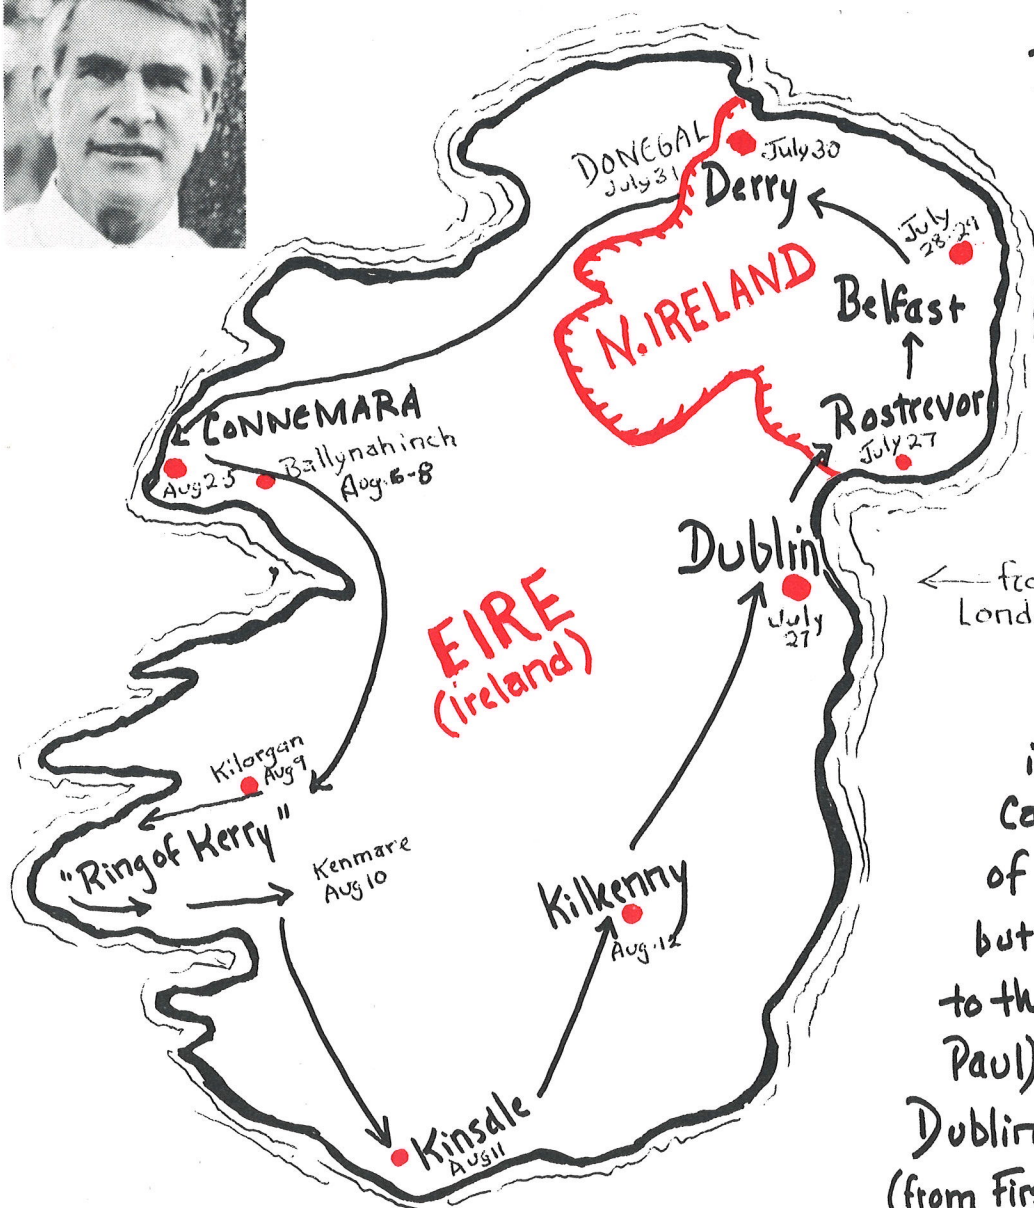 DONEGAL
July 31
July 30
Derry
July
28-29
N. IRELAND
Belfast
Rostrevor
July 27
CONNEMARA
Aug 2-5
Ballynahinch
Aug. 6-8
Dublin
July
27
EIRE
(ireland)
Kilorgan
Aug 9
"Ring of Kerry"
Kenmare
Aug 10
Kilkenny
Aug. 12
Kinsale
Aug 11
of
but
to th
Paul)
Dublin
(from Firs